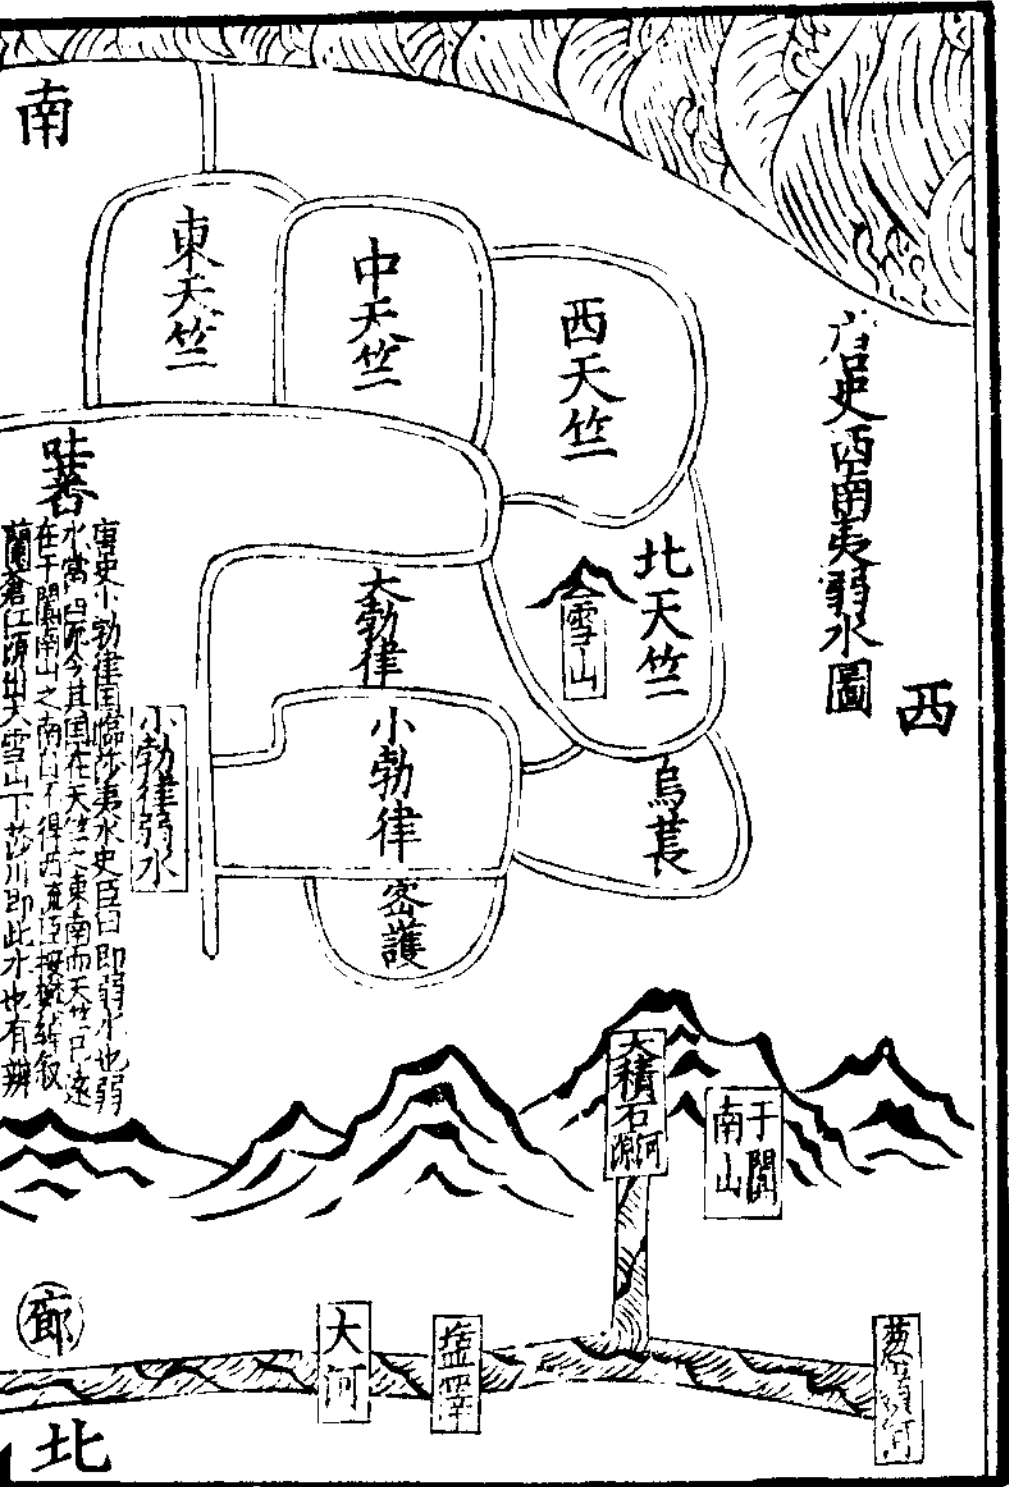 唐史西南夷弱水圖
西
南
西天竺
中天竺
東天竺
北天竺
雪山
烏萇
吐蕃
大勃律
小勃律
密護
小勃律弱水
唐史小勃律国臨沙夷水史臣曰即弱水也弱
水當西流今其国在天竺之東南而天竺已遠
在于闐南山之南自不得西流臣按樊綽叙
蘭蒼江源出大雪山下莎川即此水也有辨
大積石河源
于闐南山
葱嶺河
鹽澤
大河
廊
北